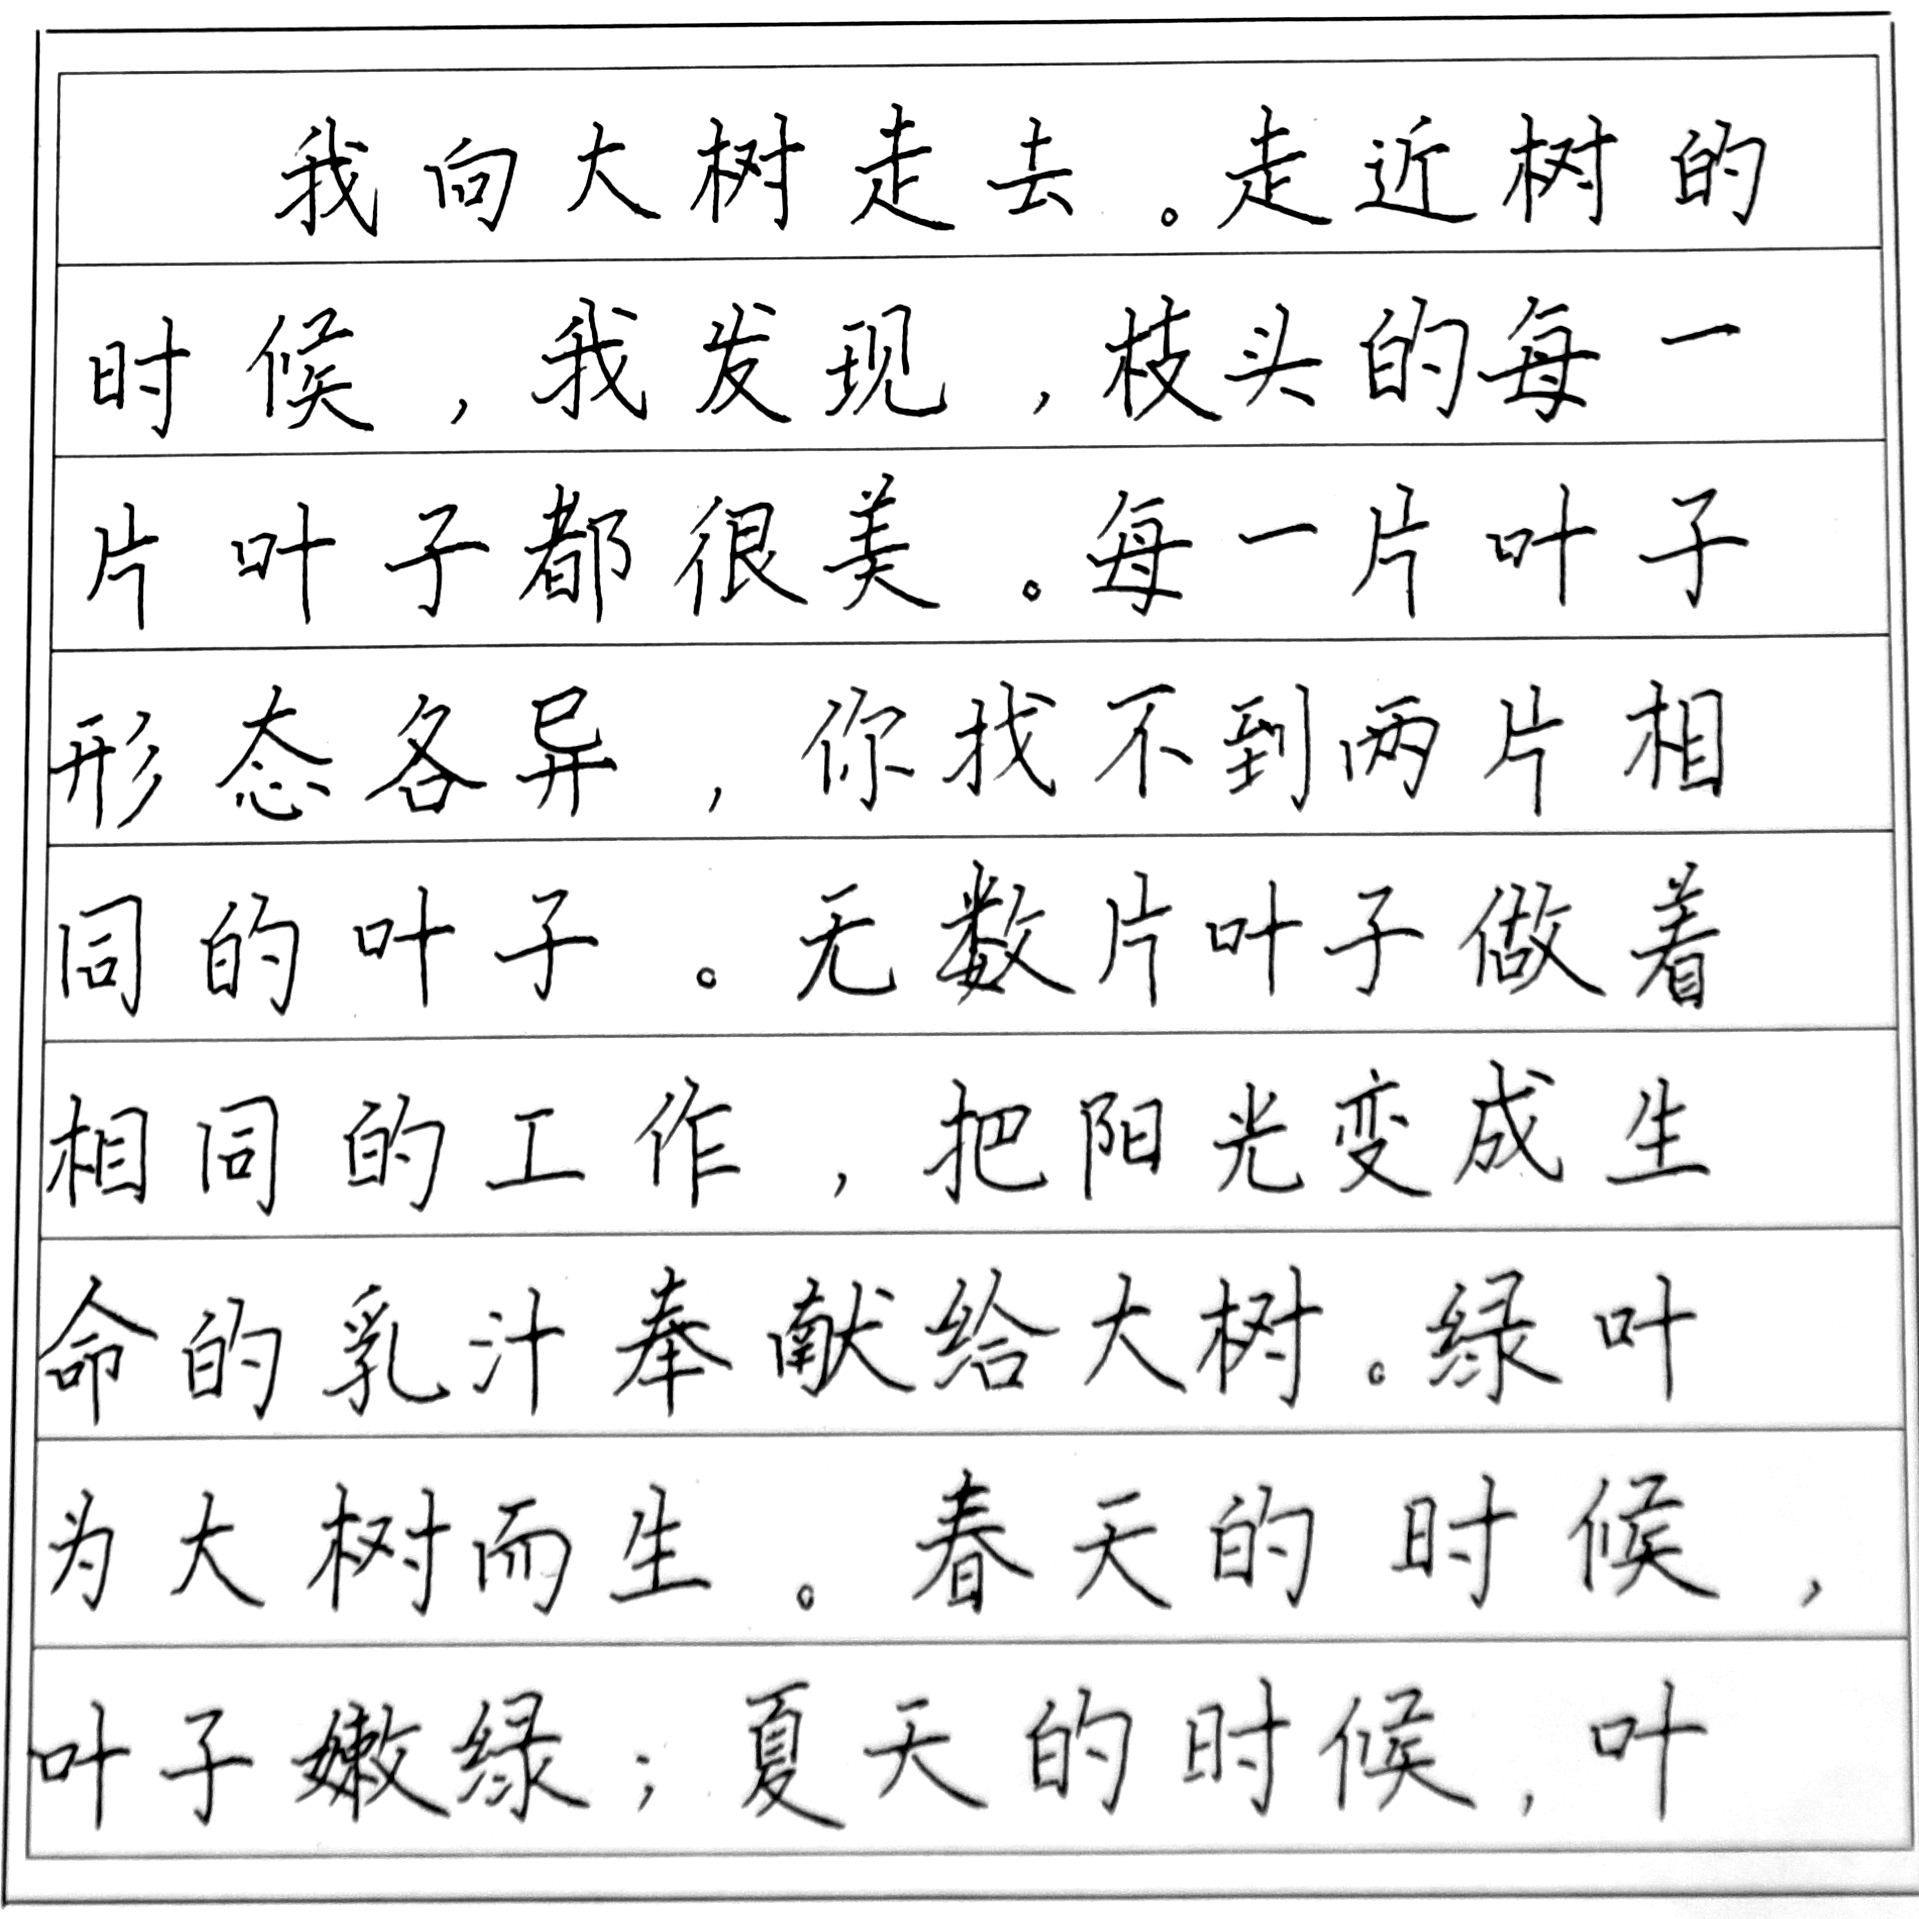 我向大树走去。走近树的
时候，我发现，枝头的每一
片叶子都很美。每一片叶子
形态各异，你找不到两片相
同的叶子。无数片叶子做着
相同的工作，把阳光变成生
命的乳汁奉献给大树。绿叶
为大树而生。春天的时候，
叶子嫩绿；夏天的时候，叶